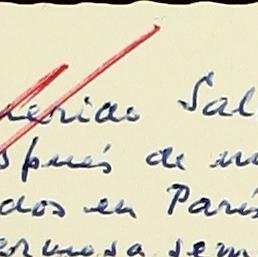 uerido Sal
spués de nu
dos en París
ermosa sem